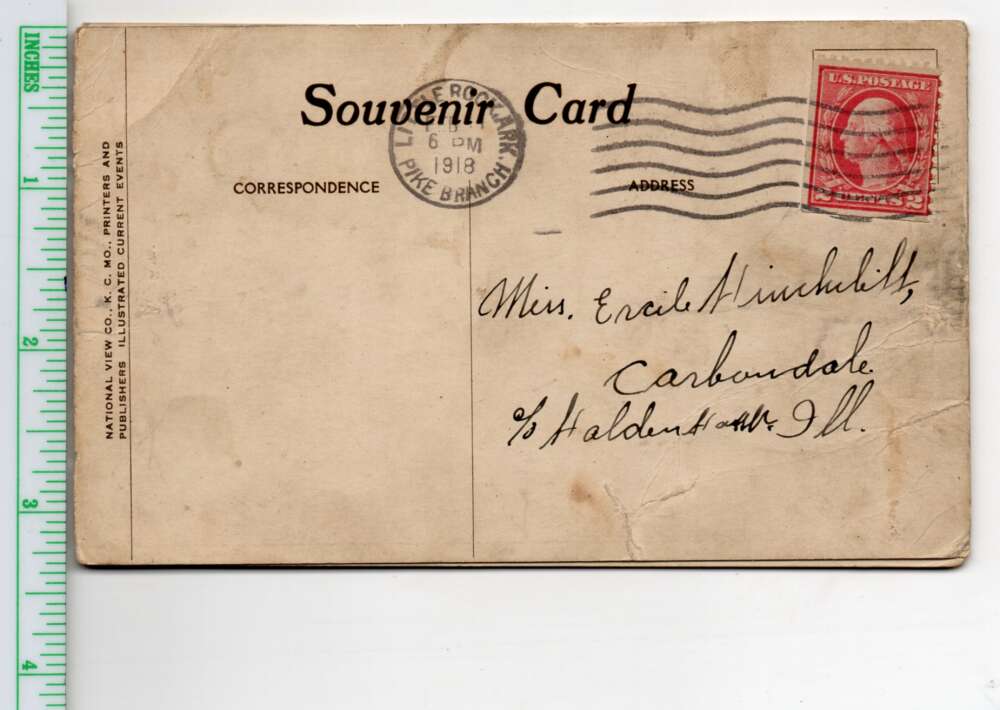 INCHES
1
2
3
4
Souvenir Card
CORRESPONDENCE
ADDRESS
LITTLE ROCK, ARK.
6 PM
1918
PIKE BRANCH
U.S. POSTAGE
2 2
NATIONAL VIEW CO., K. C. MO., PRINTERS AND
PUBLISHERS ILLUSTRATED CURRENT EVENTS
Miss. Ercile
Carbondale
c/o Halden Ill.